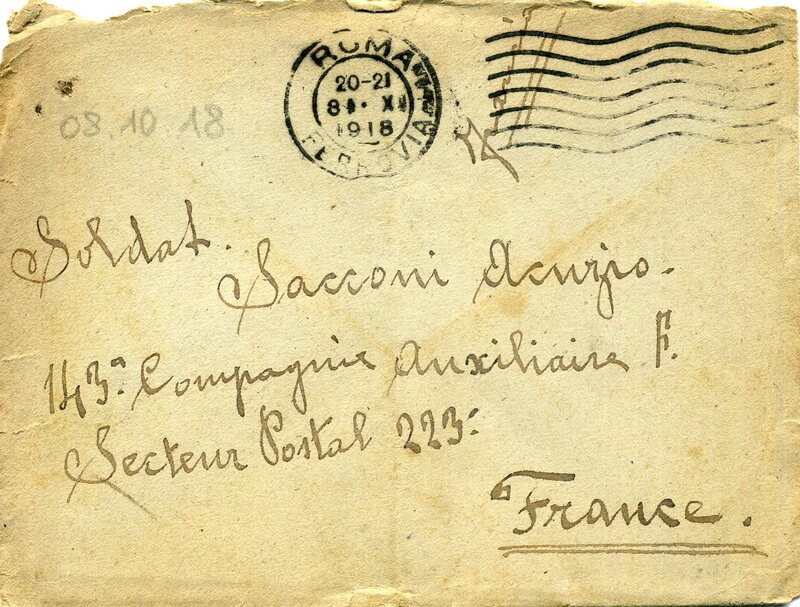 ROMA
20-21
8
1918
FERROVIA
08.10 18
Soldat.
Sacconi Acuzio.
143.a Compagnie Auxiliaire F.
Secteur Postal 223.
France.